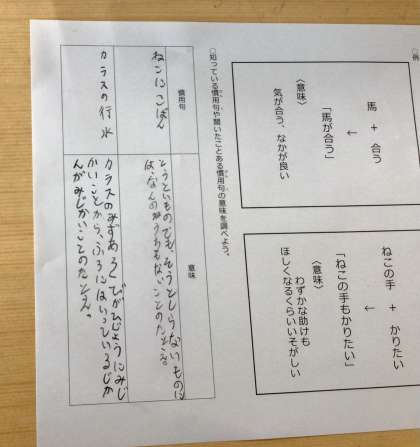 例
馬 + 合う
↓
「馬が合う」
〈意味〉
気が合う、なかが良い
ねこの手 + かりたい
↓
「ねこの手もかりたい」
〈意味〉
わずかな助けも
ほしくなるくらいいそがしい
○知っている慣用句や聞いたことある慣用句の意味を調べよう。
慣用句
意味
ねこにこばん
とうといものでも、そうとしらないものに
は、なんのかちもないことのたとえ。
カラスの行水
カラスのみずあびがひじょうにみじ
かいことから、ふろにはいっているじか
んがみじかいことのたとえ。